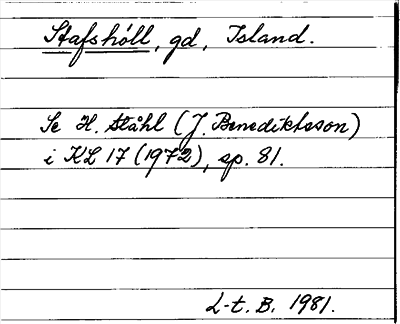 Stafshóll, gd, Island.
Se H. Ståhl (J. Benediktsson)
i KL 17 (1972), sp. 81.
L-t. B. 1981.